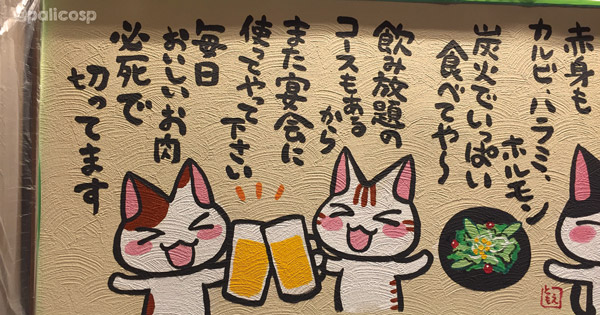 @palicosp
赤身も
カルビ、ハラミ、
ホルモン
炭火でいっぱい
食べてや〜
飲み放題の
コースもある
から
また宴会に
使ってやって
下さい
毎日
おいしいお肉
必死で
切ってます
ともえ